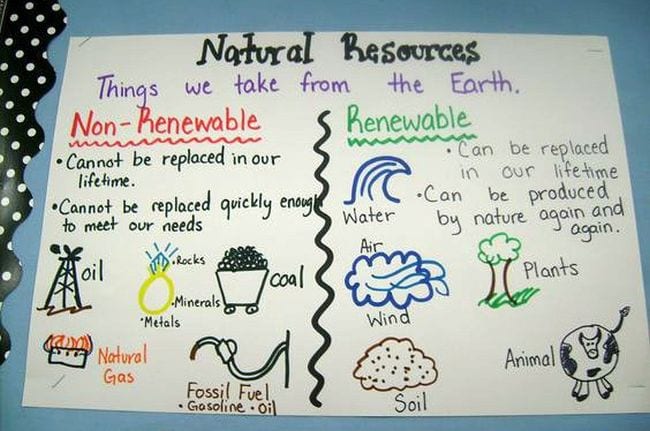 Natural Resources
Things we take from the Earth.
Non-Renewable
• Cannot be replaced in our
lifetime.
• Cannot be replaced quickly enough
to meet our needs
oil
• Rocks
• Minerals
• Metals
coal
Natural
Gas
Fossil Fuel
• Gasoline • Oil
Renewable
• Can be replaced
in our lifetime
• Can be produced
by nature again and
again.
Water
Air
Wind
Plants
Soil
Animal